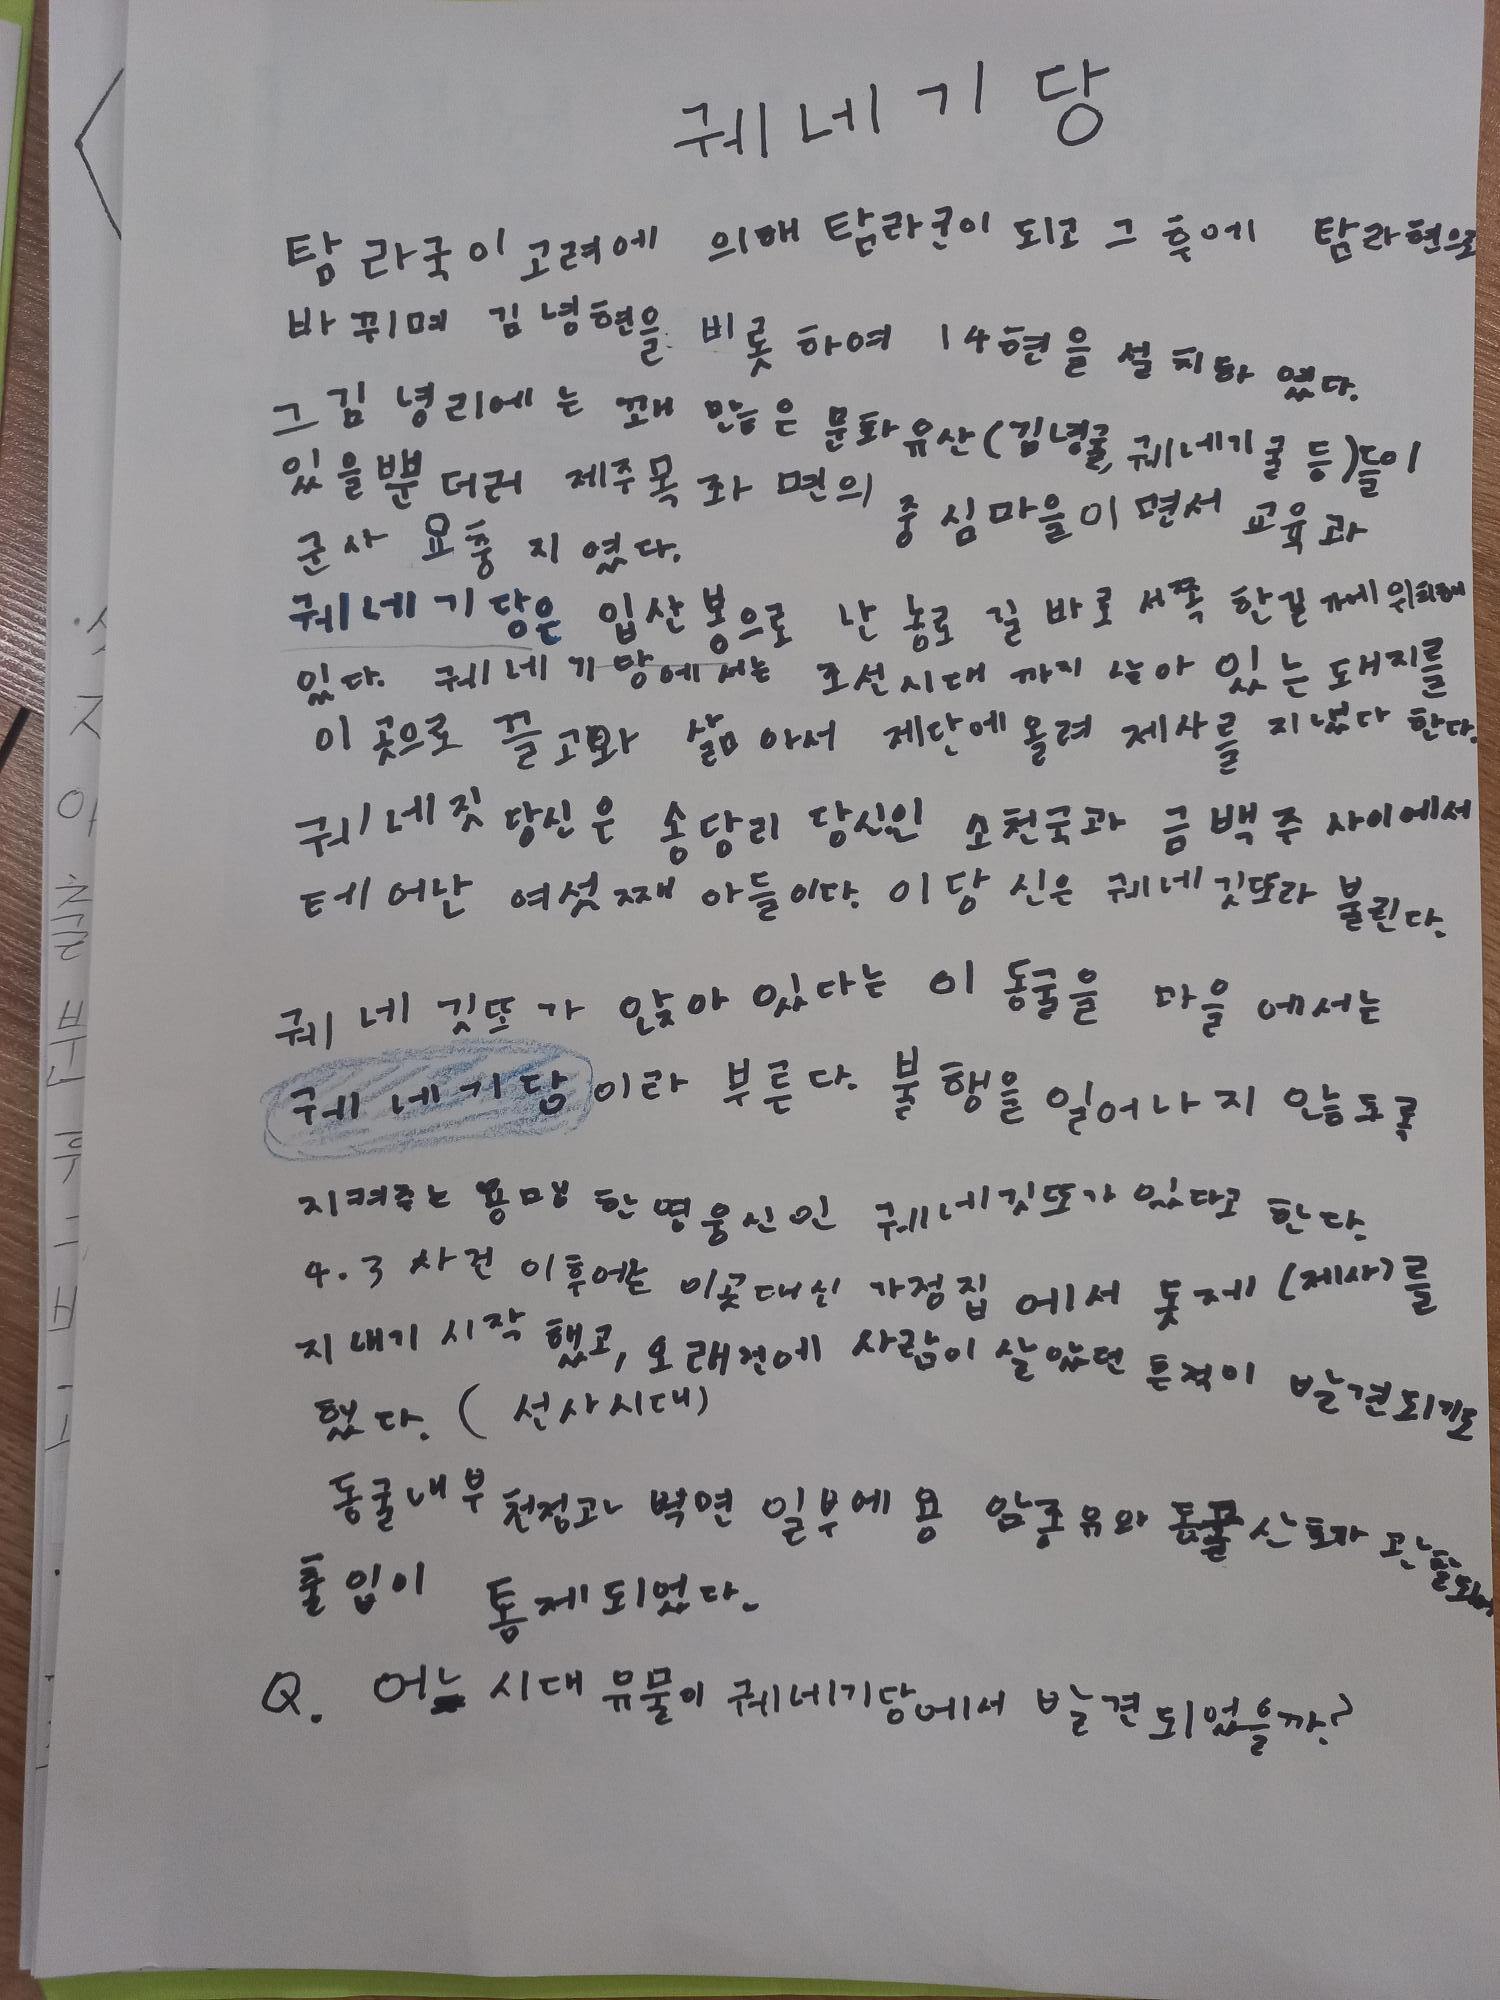 궤네기당
탐라국이 고려에 의해 탐라군이 되고 그 후에 탐라현으로
바뀌며 김녕현을 비롯하여 14현을 설치하였다.
그 김녕리에는 꽤 많은 문화유산(김녕굴, 궤네기굴 등)들이
있을뿐더러 제주목 좌면의 중심마을이면서 교육과
군사 요충지였다.
궤네기당은 입산봉으로 난 농로 길 바로 서쪽 한길가에 위치해
있다. 궤네기당에서는 조선시대 까지 남아 있는 돼지를
이 곳으로 끌고와 삶아서 제단에 올려 제사를 지냈다 한다.
궤네깃 당신은 송당리 당신인 소천국과 금백주 사이에서
테어난 여섯째 아들이다. 이 당신은 궤네깃또라 불린다.
궤네깃또가 앉아 있다는 이 동굴을 마을에서는
궤네기당이라 부른다. 불행을 일어나지 않도록
지켜주는 용맹한 영웅신인 궤네깃또가 있다고 한다.
4.3 사건 이후에는 이곳대신 가정집에서 돗제 (제사)를
지내기 시작했고, 오래전에 사람이 살았던 흔적이 발견되기도
했다. (선사시대)
동굴내부 천정과 벽면 일부에 용암종유와 동굴산호가 관찰되어
출입이 통제되었다.
Q. 어느 시대 유물이 궤네기당에서 발견되었을까?